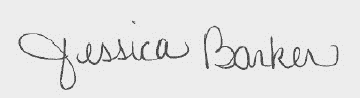 Jessica Barker